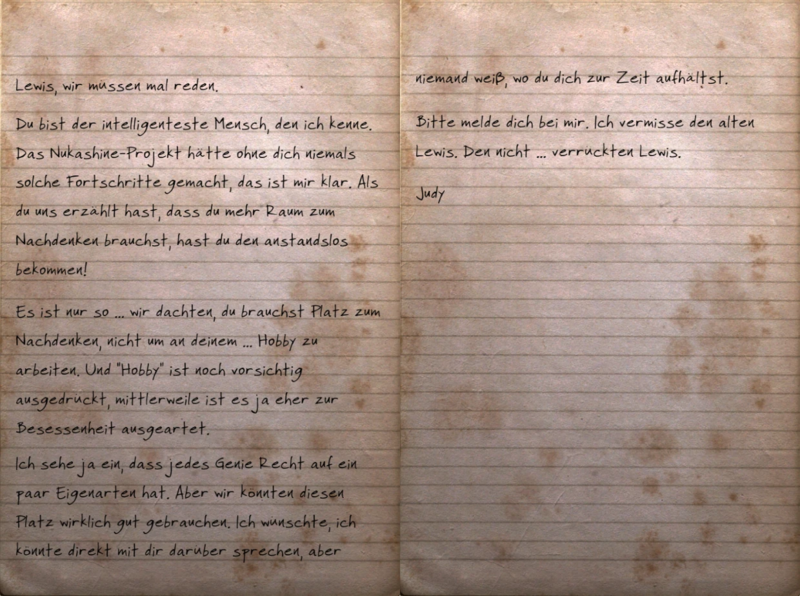 Lewis, wir müssen mal reden.
Du bist der intelligenteste Mensch, den ich kenne.
Das Nukashine-Projekt hätte ohne dich niemals
solche Fortschritte gemacht, das ist mir klar. Als
du uns erzählt hast, dass du mehr Raum zum
Nachdenken brauchst, hast du den anstandslos
bekommen!
Es ist nur so ... wir dachten, du brauchst Platz zum
Nachdenken, nicht um an deinem ... Hobby zu
arbeiten. Und "Hobby" ist noch vorsichtig
ausgedrückt, mittlerweile ist es ja eher zur
Besessenheit ausgeartet.
Ich sehe ja ein, dass jedes Genie Recht auf ein
paar Eigenarten hat. Aber wir könnten diesen
Platz wirklich gut gebrauchen. Ich wünschte, ich
könnte direkt mit dir darüber sprechen, aber
niemand weiß, wo du dich zur Zeit aufhältst.
Bitte melde dich bei mir. Ich vermisse den alten
Lewis. Den nicht ... verrückten Lewis.
Judy